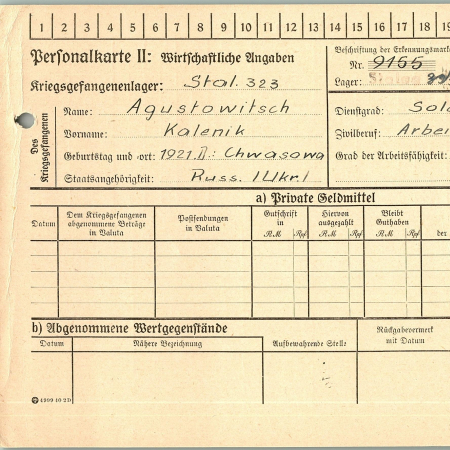 1 2 3 4 5 6 7 8 9 10 11 12 13 14 15 16 17 18 19
Personalkarte II: Wirtschaftliche Angaben
Kriegsgefangenenlager: Stal. 323
Beschriftung der Erkennungsmark
Nr. 9155
Lager: Stalag
Des Kriegsgefangenen
Name: Agustowitsch
Vorname: Kalenik
Geburtstag und -ort: 1921.II.: Chwasowa
Staatsangehörigkeit: Russ. /Ukr./
Dienstgrad: Sol
Zivilberuf: Arbe
Grad der Arbeitsfähigkeit:
a) Private Geldmittel
Datum
Dem Kriegsgefangenen abgenommene Beträge in Valuta
Postsendungen in Valuta
Gutschrift in
RM Rpf
Hiervon ausgezahlt
RM Rpf
Bleibt Guthaben
RM Rpf
der
b) Abgenommene Wertgegenstände
Datum
Nähere Bezeichnung
Aufbewahrende Stelle
Rückgabevermerk mit Datum
4999 10 2D